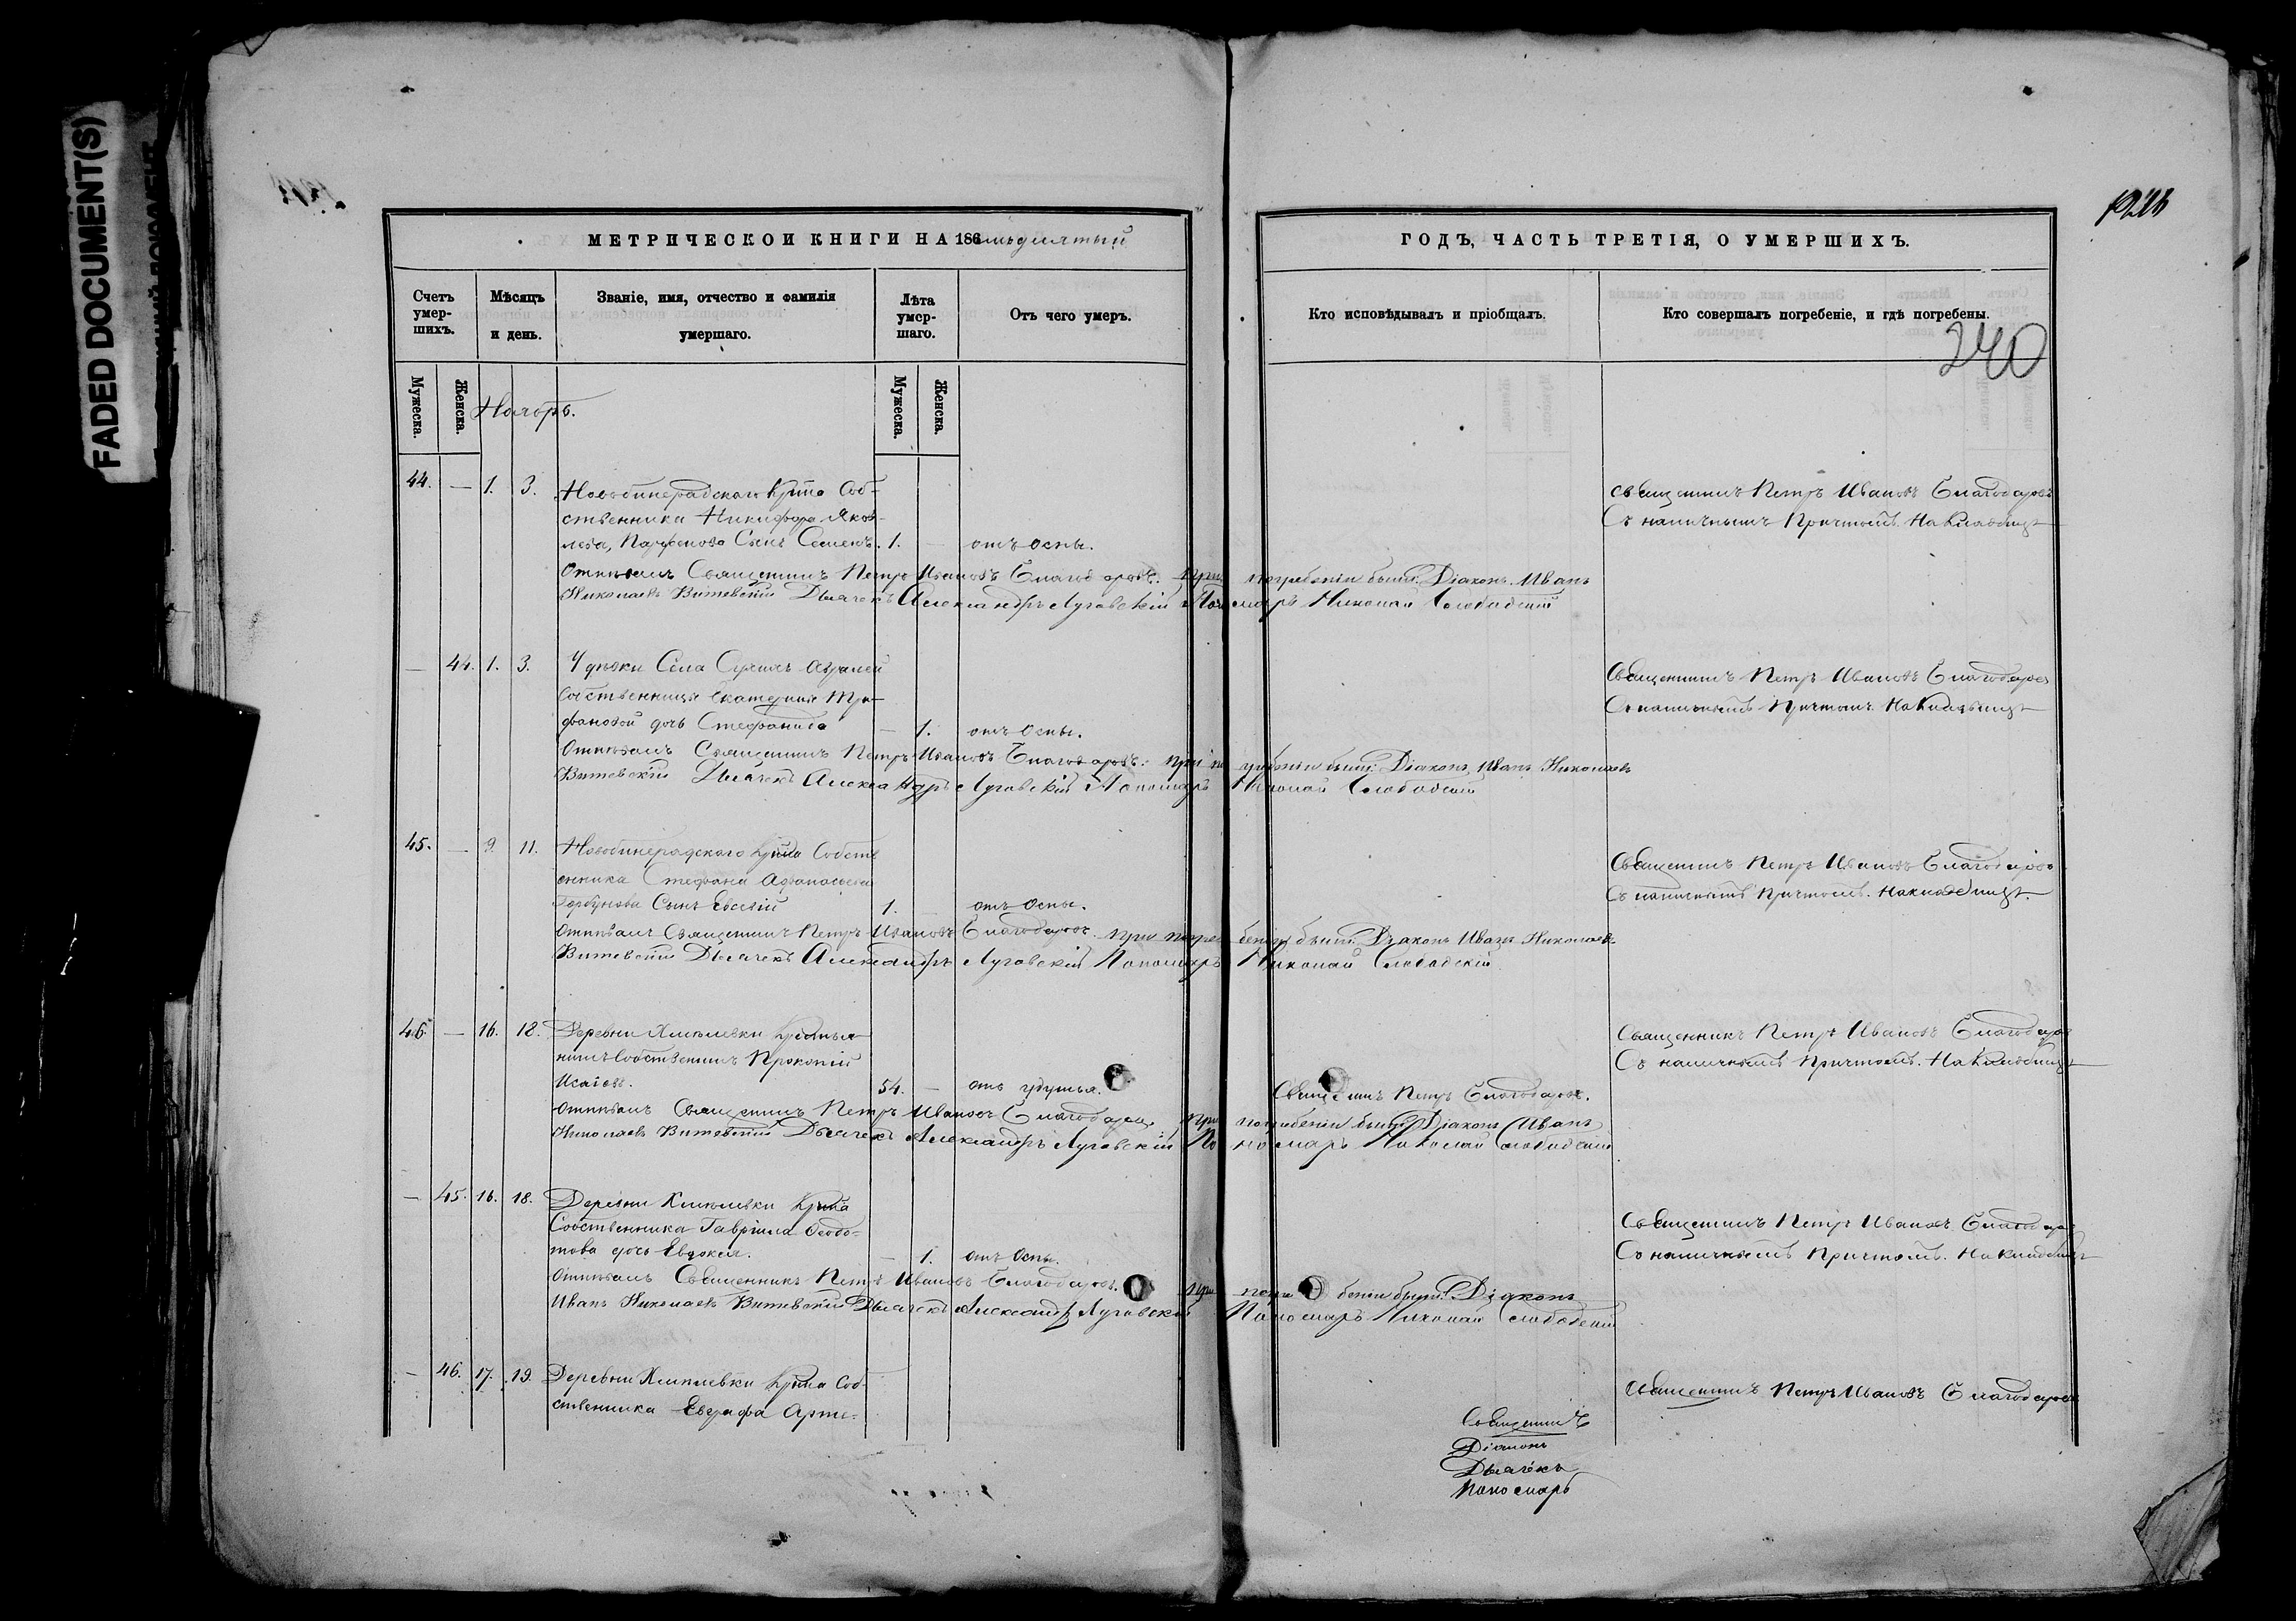 FADED DOCUMENT(S)
МЕТРИЧЕСКОЙ КНИГИ НА 186
Счетъ умер-шихъ.
Мѣсяцъ и день.
Званіе, имя, отчество и фамилія умершаго.
Лѣта умер-шаго.
Отъ чего умеръ.
Мужеска.
Женска.
Ноябрь.
Мужеска.
Женска.
44. — 1. 3. Новобинарадскаго Крнна Соб-
ственника Никифора Яков-
лева, Парфенова Сынъ Семенъ. 1. — отъ оспы.
Отпѣвалъ Священникъ Петръ Ивановъ Благодаровъ. при погребеніи были: Діаконъ Иванъ
Николаевъ Витевскій Дьячекъ Александръ Луговскій Пономарь Николай Слободскій
— 44. 1. 3. Удѣльн Села
Собственницы Екатерины Три-
фановой дочь Стефанида — 1. отъ Оспы.
Отпѣвалъ Священникъ Петръ Ивановъ Благодаровъ: при погребеніи были: Діаконъ Иванъ Николаевъ
Витевскій Дьячекъ Александръ Луговскій Пономарь Николай Слободскій
45. — 9. 11. Новобинарадскаго Крнна Собств
енника Стефана Афанасьева
Горбунова Сынъ Евсевій 1. отъ Оспы.
Отпѣвалъ Священникъ Петръ Ивановъ Благодаровъ при погребеніи были: Діаконъ Иванъ Николаевъ
Витевскій Дьячекъ Александръ Луговскій Пономарь Николай Слободскій
46. — 16. 18. Деревни Хмѣлевки Крестья-
нинъ Собственникъ Прокопій
Исаіевъ. 54. — отъ удушья.
Отпѣвалъ Священникъ Петръ Ивановъ Благодаровъ при погребеніи были Діаконъ Иванъ
Николаевъ Витевскій Дьячекъ Александръ Луговскій Пономарь Николай Слободскій
— 45. 16. 18. Деревни Хмѣлевки Крнна
Собственника Гавріила Ѳедо-
това дочь Евдокія. — 1. отъ Оспы.
Отпѣвалъ Священникъ Петръ Ивановъ Благодаровъ. при погребеніи были: Діаконъ
Иванъ Николаевъ Витевскій Дьячекъ Александръ Луговской Пономарь Николай Слободскій
— 46. 17. 19. Деревни Хмѣлевки Крнна Соб-
ственника Евграфа Арте-
ГОДЪ, ЧАСТЬ ТРЕТІЯ, О УМЕРШИХЪ.
Кто исповѣдывалъ и пріобщалъ.
Кто совершалъ погребеніе, и гдѣ погребены.
240
Священникъ Петръ Ивановъ Благодаровъ
Съ наличнымъ Причтомъ. На Кладбищѣ
Священникъ Петръ Ивановъ Благодаровъ
Съ наличнымъ Причтомъ. На Кладбищѣ
Священникъ Петръ Ивановъ Благодаровъ
Съ наличнымъ Причтомъ. На кладбищѣ.
Священникъ Петръ Ивановъ Благодаровъ
Съ наличнымъ Причтомъ. На Кладбищѣ
Священникъ Петръ Благодаровъ.
Священникъ Петръ Ивановъ Благодаровъ
Съ наличнымъ Причтомъ. На Кладбищѣ
Священникъ Петръ Ивановъ Благодаровъ
Священникъ
Діаконъ
Дьячекъ
Пономарь